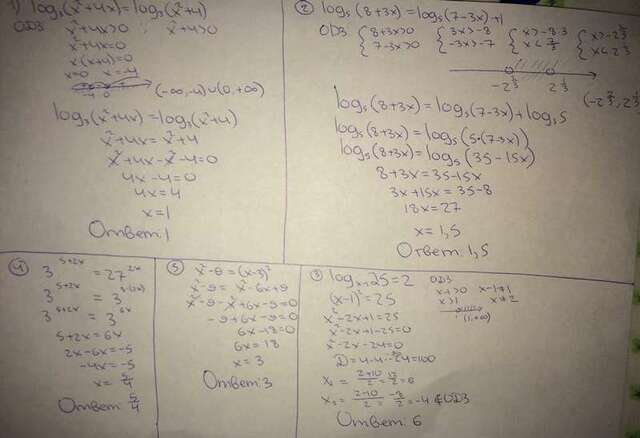 1) log₅(x²+4x)=log₅(x²+4)
ОДЗ x²+4x>0 x²+4>0
x²+4x=0
x(x+4)=0
x=0 x=-4
-4 0 (-∞,-4)∪(0,+∞)
log₅(x²+4x)=log₅(x²+4)
x²+4x=x²+4
x²+4x-x²-4=0
4x-4=0
4x=4
x=1
Ответ:1
② log₅(8+3x)=log₅(7-3x)+1
ОДЗ {8+3x>0 {3x>-8 {x>-8:3 {x>-2⅔
7-3x>0 -3x>-7 x<7/3 x<2⅓
-2⅔ 2⅓
(-2⅔, 2⅓)
log₅(8+3x)=log₅(7-3x)+log₅5
log₅(8+3x)=log₅(5*(7-3x))
log₅(8+3x)=log₅(35-15x)
8+3x=35-15x
3x+15x=35-8
18x=27
x=1,5
Ответ:1,5
④ 3⁵⁺²ˣ=27²ˣ
3⁵⁺²ˣ=3³·⁽²ˣ⁾
3⁵⁺²ˣ=3⁶ˣ
5+2x=6x
2x-6x=-5
-4x=-5
x=5/4
Ответ 5/4
⑤ x²-9=(x-3)²
x²-9=x²-6x+9
x²-9-x²+6x-9=0
-9+6x-9=0
6x-18=0
6x=18
x=3
Ответ:3
③ logₓ₋₁25=2 ОДЗ
x-1>0 x-1≠1
x>1 x≠2
1 (1,+∞)
(x-1)²=25
x²-2x+1=25
x²-2x+1-25=0
x²-2x-24=0
D=4-4·-24=100
x₁=(2+10)/2=12/2=6
x₂=(2-10)/2=-8/2=-4∉ОДЗ
Ответ:6